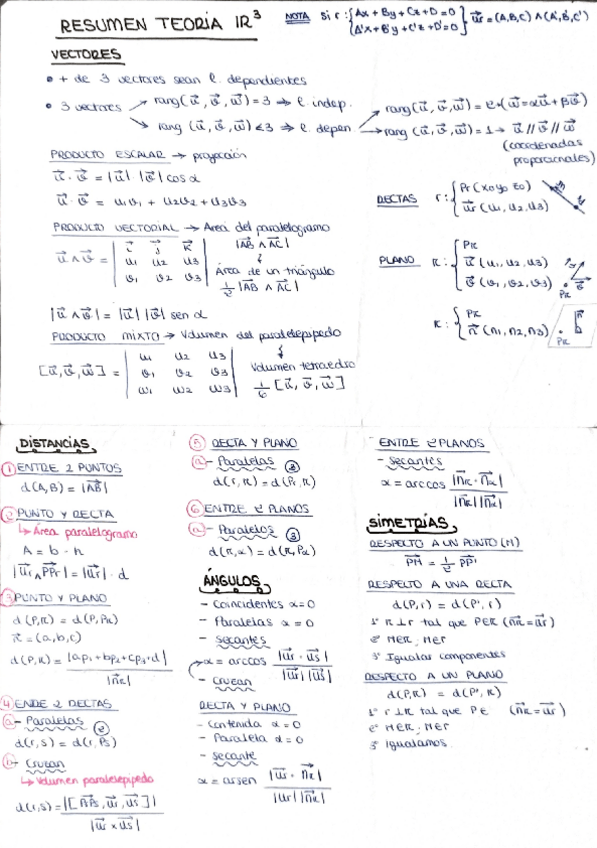 RESUMEN TEORÍA IR³
NOTA Si r: { Ax + By + Cz + D = 0
A'x + B'y + C'z + D' = 0 } ur = (A,B,C) ∧ (A',B',C')
VECTORES
• + de 3 vectores sean l. dependientes
• 3 vectores → rang(u, v, w) = 3 ⇒ l. indep.
→ rang (u, v, w) < 3 ⇒ l. depen.
→ rang(u, v, w) = 2 (w = αu + βv)
→ rang (u, v, w) = 1 → u // v // w
(coordenadas
proporcionales)
PRODUCTO ESCALAR → proyección
u · v = |u| · |v| cos α
u · v = u1v1 + u2v2 + u3v3
PRODUCTO VECTORIAL → Área del paralelogramo
|AB ∧ AC|
u ∧ v = | i j k |
| u1 u2 u3 |
| v1 v2 v3 |
Área de un triángulo
1/2 |AB ∧ AC|
|u ∧ v| = |u| |v| sen α
PRODUCTO MIXTO → Volumen del paralelepípedo
[u, v, w] = | u1 u2 u3 |
| v1 v2 v3 |
| w1 w2 w3 |
Volumen tetraedro
1/6 [u, v, w]
RECTAS r: { Pr (x0 y0 z0)
ur (u1, u2, u3)
PLANO π: { Pπ
u (u1, u2, u3)
v (v1, v2, v3)
Pπ
π: { Pπ
n (n1, n2, n3)
Pπ
DISTANCIAS
1 ENTRE 2 PUNTOS
d(A,B) = |AB|
2 PUNTO y RECTA
↳ Área paralelogramo
A = b · h
|ur ∧ PPr| = |ur| · d
3 PUNTO y PLANO
d(P,π) = d(P,Pπ)
π = (a,b,c)
d(P,π) = |ap1 + bp2 + cp3 + d| / |nπ|
4 ENTRE 2 RECTAS
a- Paralelas 2
d(r,s) = d(r,Ps)
b- Cruzan
↳ Volumen paralelepípedo
d(r,s) = |[PrPs, ur, us]| / |ur x us|
5 RECTA Y PLANO
a- Paralelas 3
d(r,π) = d(Pr,π)
6 ENTRE 2 PLANOS
a- Paralelos 3
d(π,α) = d(π,Pα)
ÁNGULOS
- Coincidentes α = 0
- Paralelas α = 0
- secantes
α = arccos |ur · us| / |ur| |us|
- Cruzan
RECTA y PLANO
- Contenida α = 0
- Paralela α = 0
- secante
α = arsen |ur · nπ| / |ur| |nπ|
ENTRE 2 PLANOS
- secantes
α = arccos |nπ · nα| / |nπ| |nα|
SIMETRÍAS
RESPECTO A UN PUNTO (M)
PM = 1/2 PP'
RESPECTO A UNA RECTA
d(P,r) = d(P',r)
1º π ⊥ r tal que P∈π (nπ = ur)
2º M∈π, M∈r
3º Igualar componentes
RESPECTO A UN PLANO
d(P,π) = d(P',π)
1º r ⊥ π tal que P∈ (nπ = ur)
2º M∈π, M∈r
3º Igualamos